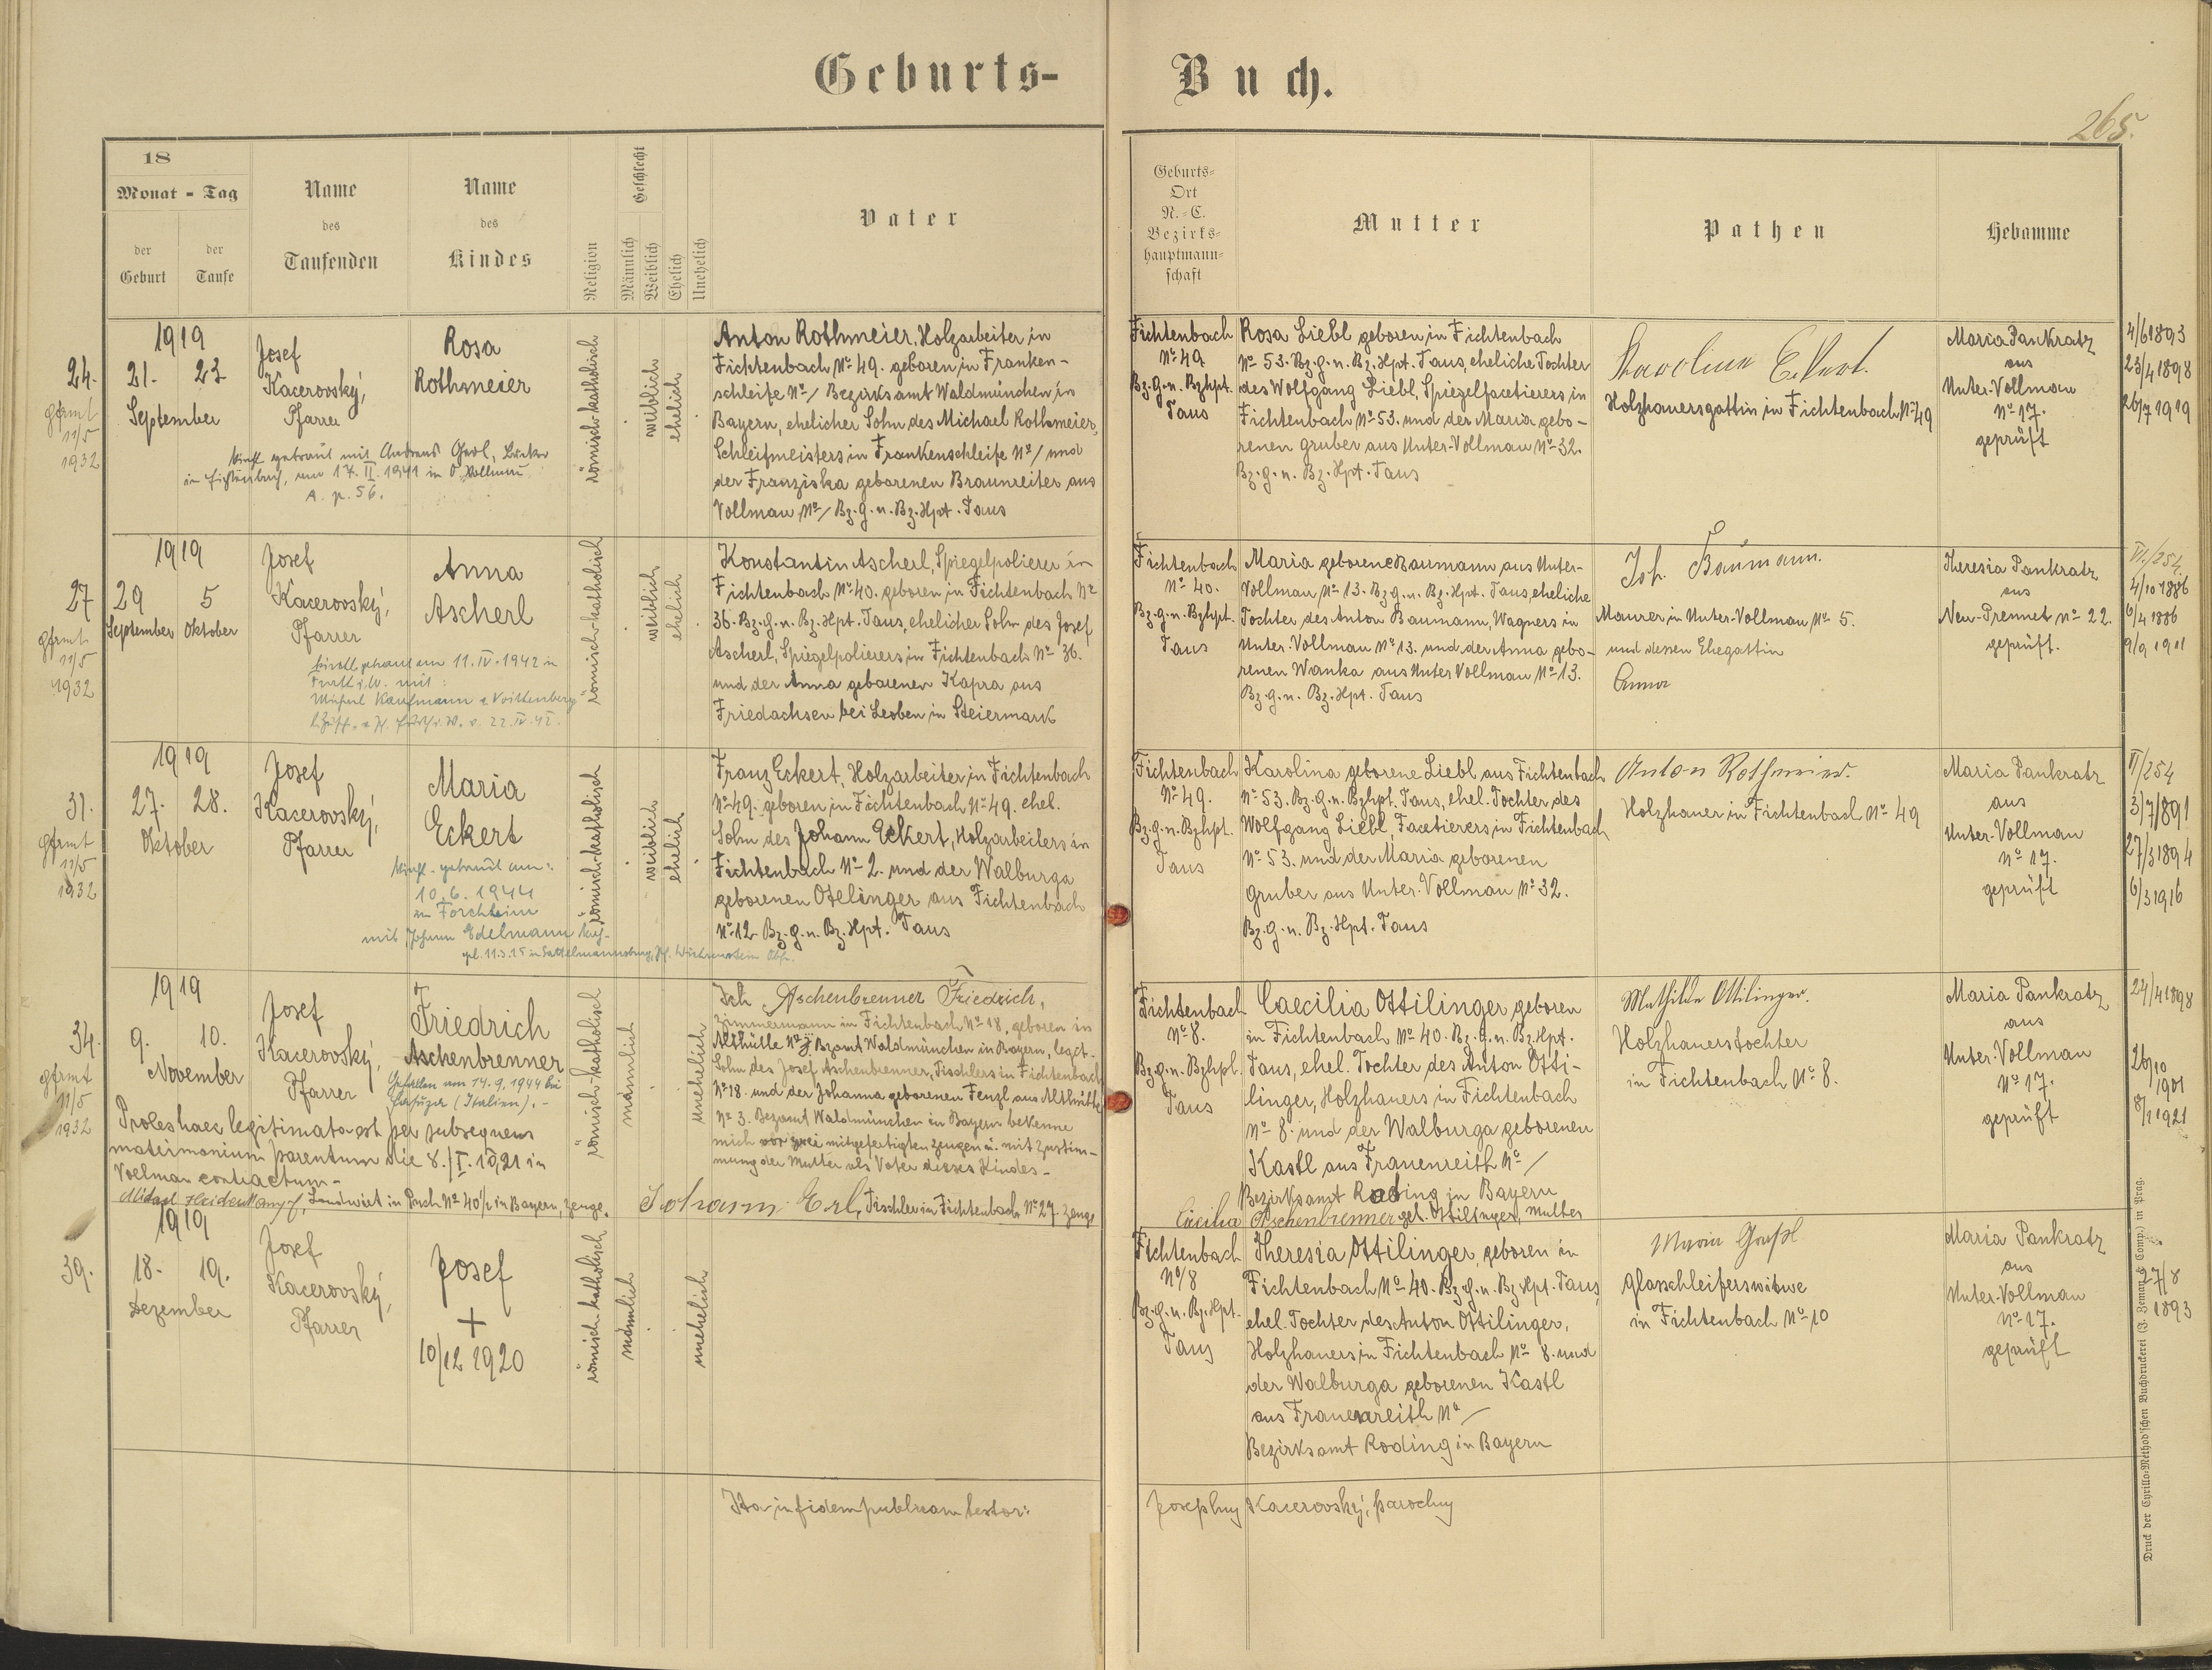 Geburts-
Buch.
265.
18
Monat - Tag
der Geburt
der Taufe
Name
des
Taufenden
Name
des
Kindes
Religion
Geschlecht
Männlich
Weiblich
Ehelich
Unehelich
Vater
Geburts-
Ort
N.-C.
Bezirks-
hauptmann-
schaft
Mutter
Pathen
Hebamme
24.
gfirmt
11/5
1932
1919
21. 23
September
Josef
Kacerovský,
Pfarrer
Rosa
Rothmeier
in Fichtenbach, am 17. II. 1941 in O. Vollmau
A. p. 56.
römisch-katholisch
weiblich
ehelich
Anton Rothmeier, Holzarbeiter in
Fichtenbach No 49. geboren in Franken-
schleife No / Bezirksamt Waldmünchen in
Bayern, ehelicher Sohn des Michael Rothmeier,
Schleifmeisters in Frankenschleife No / und
der Franziska geborenen Braunreiter aus
Vollmau No / Bz. G. u. Bz. Hpt. Taus
Fichtenbach
No 49
Bz. g. u. Bzhpt.
Taus
Rosa Liebl geboren in Fichtenbach
No 53. Bz. g. u. Bz. Hpt. Taus, eheliche Tochter
des Wolfgang Liebl, Spiegelfacetierers in
Fichtenbach No 53. und der Maria gebo-
renen Gruber aus Unter-Vollmau No 32.
Bz. g. u. Bz. Hpt. Taus
Karolina Eckert.
Holzhauersgattin in Fichtenbach No 49
Maria Pankratz
aus
Unter-Vollmau
No 17.
geprüft
4/6 1893
23/4 1898
26/7 1919
27
gfirmt
11/5
1932
1919
29 5
September Oktober
Josef
Kacerovský,
Pfarrer
Anna
Ascherl
kirchl. getraut am 11. IV. 1942 in
Furth i. W. mit:
römisch-katholisch
weiblich
ehelich
Konstantin Ascherl, Spiegelpolierer in
Fichtenbach No 40. geboren in Fichtenbach No
36. Bz. G. u. Bz. Hpt. Taus, ehelicher Sohn des Josef
Ascherl, Spiegelpolierers in Fichtenbach No 36.
und der Anna geborenen Kapra aus
Friedachsen bei Leoben in Steiermark
Fichtenbach
No 40.
Bz. g. u. Bzhpt.
Taus
Maria geborene Baumann aus Unter-
Vollmau No 13. Bz. g. u. Bz. Hpt. Taus, eheliche
Tochter des Anton Baumann, Wagners in
Unter-Vollmau No 13. und der Anna gebo-
renen Wanka aus Unter Vollmau No 13.
Bz. g. u. Bz. Hpt. Taus
Joh. Baumann.
Maurer in Unter-Vollmau No 5.
und dessen Ehegattin
Anna
Theresia Pankratz
aus
Neu-Prennet No 22.
geprüft.
VI./254
4/10 1886
6/4 1886
9/9 1911
31.
gfirmt
11/5
1932
1919
27. 28.
Oktober
Josef
Kacerovský,
Pfarrer
Maria
Eckert
kirchl. getraut am:
10. 6. 1944
in Forchheim
mit Johann Edelmann
römisch-katholisch
weiblich
ehelich
Franz Eckert, Holzarbeiter in Fichtenbach
No 49. geboren in Fichtenbach No 49. ehel.
Sohn des Johann Eckert, Holzarbeiters in
Fichtenbach No 2. und der Walburga
geborenen Ottlinger aus Fichtenbach
No 12 Bz. g. u. Bz. Hpt. Taus
Fichtenbach
No 49.
Bz. g. u. Bzhpt.
Taus
Karolina geborene Liebl aus Fichtenbach
No 53. Bz. g. u. Bzhpt. Taus, ehel. Tochter des
Wolfgang Liebl, Facetierers in Fichtenbach
No 53. und der Maria geborenen
Gruber aus Unter-Vollmau No 32.
Bz. g. u. Bz. Hpt. Taus
Anton Rothmeier.
Holzhauer in Fichtenbach No 49
Maria Pankratz
aus
Unter-Vollmau
No 17.
geprüft
VI/254
3/7/891
27/3 1894
6/3 1916
34.
gfirmt
11/5
1932
1919
9. 10.
November
Josef
Kacerovský,
Pfarrer
Friedrich
Aschenbrenner
Gefallen am 14. 9. 1944 bei
(Italien). -
Proles haec legitimata est per subsequens
matrimonium parentum die 8./I. 1921 in
Vollmau contractum -
Michael Heidenkampf, Landwirt in Puch No 40 1/2 in Bayern, Zeuge.
römisch-katholisch
männlich
unehelich
Ich Aschenbrenner Friedrich,
Zimmermann in Fichtenbach No 18, geboren in
Althütte No 3, Bzamt Waldmünchen in Bayern, legit.
Sohn des Josef Aschenbrenner, Tischlers in Fichtenbach
No 18. und der Johanna geborenen Fenzl aus Althütte
No 3. Bezamt Waldmünchen in Bayern bekenne
mich vor zwei mitgefertigten Zeugen u. mit Zustim-
mung der Mutter als Vater dieses Kindes -
Johann Erl, Tischler in Fichtenbach No 27. Zeuge
Fichtenbach
No 8.
Bz. g. u. Bzhpt.
Taus
Caecilia Ottilinger geboren
in Fichtenbach No 40. Bz. G. u. Bz. Hpt.
Taus, ehel. Tochter des Anton Otti-
linger, Holzhauers in Fichtenbach
No 8. und der Walburga geborenen
Kastl aus Frauenreith No /
Bezirksamt Roding in Bayern
Cäcilia Aschenbrenner geb. Ottilinger, Mutter
Mathilde Ottilinger.
Holzhauerstochter
in Fichtenbach No 8.
Maria Pankratz
aus
Unter-Vollmau
No 17.
geprüft
24/4 1898
26/10
1901
8/1 1921
39.
1919
18. 19.
Dezember
Josef
Kacerovský,
Pfarrer
Josef
+
10/12 1920
römisch-katholisch
männlich
unehelich
Fichtenbach
No/8
Bz. g. u. Bz. Hpt.
Taus
Theresia Ottilinger, geboren in
Fichtenbach No 40. Bz. g. u. Bz. Hpt. Taus
ehel. Tochter des Anton Ottilinger,
Holzhauers in Fichtenbach No 8. und
der Walburga geborenen Kastl
aus Frauenreith No /
Bezirksamt Roding in Bayern
Glasschleiferswitwe
in Fichtenbach No 10
Maria Pankratz
aus
Unter-Vollmau
No 17.
geprüft
27/8
1893
Ita in fidem publicam testor:
Josephus Kacerovský, parochus
Druck der Cyrillo-Method'schen Buchdruckerei (J. Zeman & Comp.) in Prag.